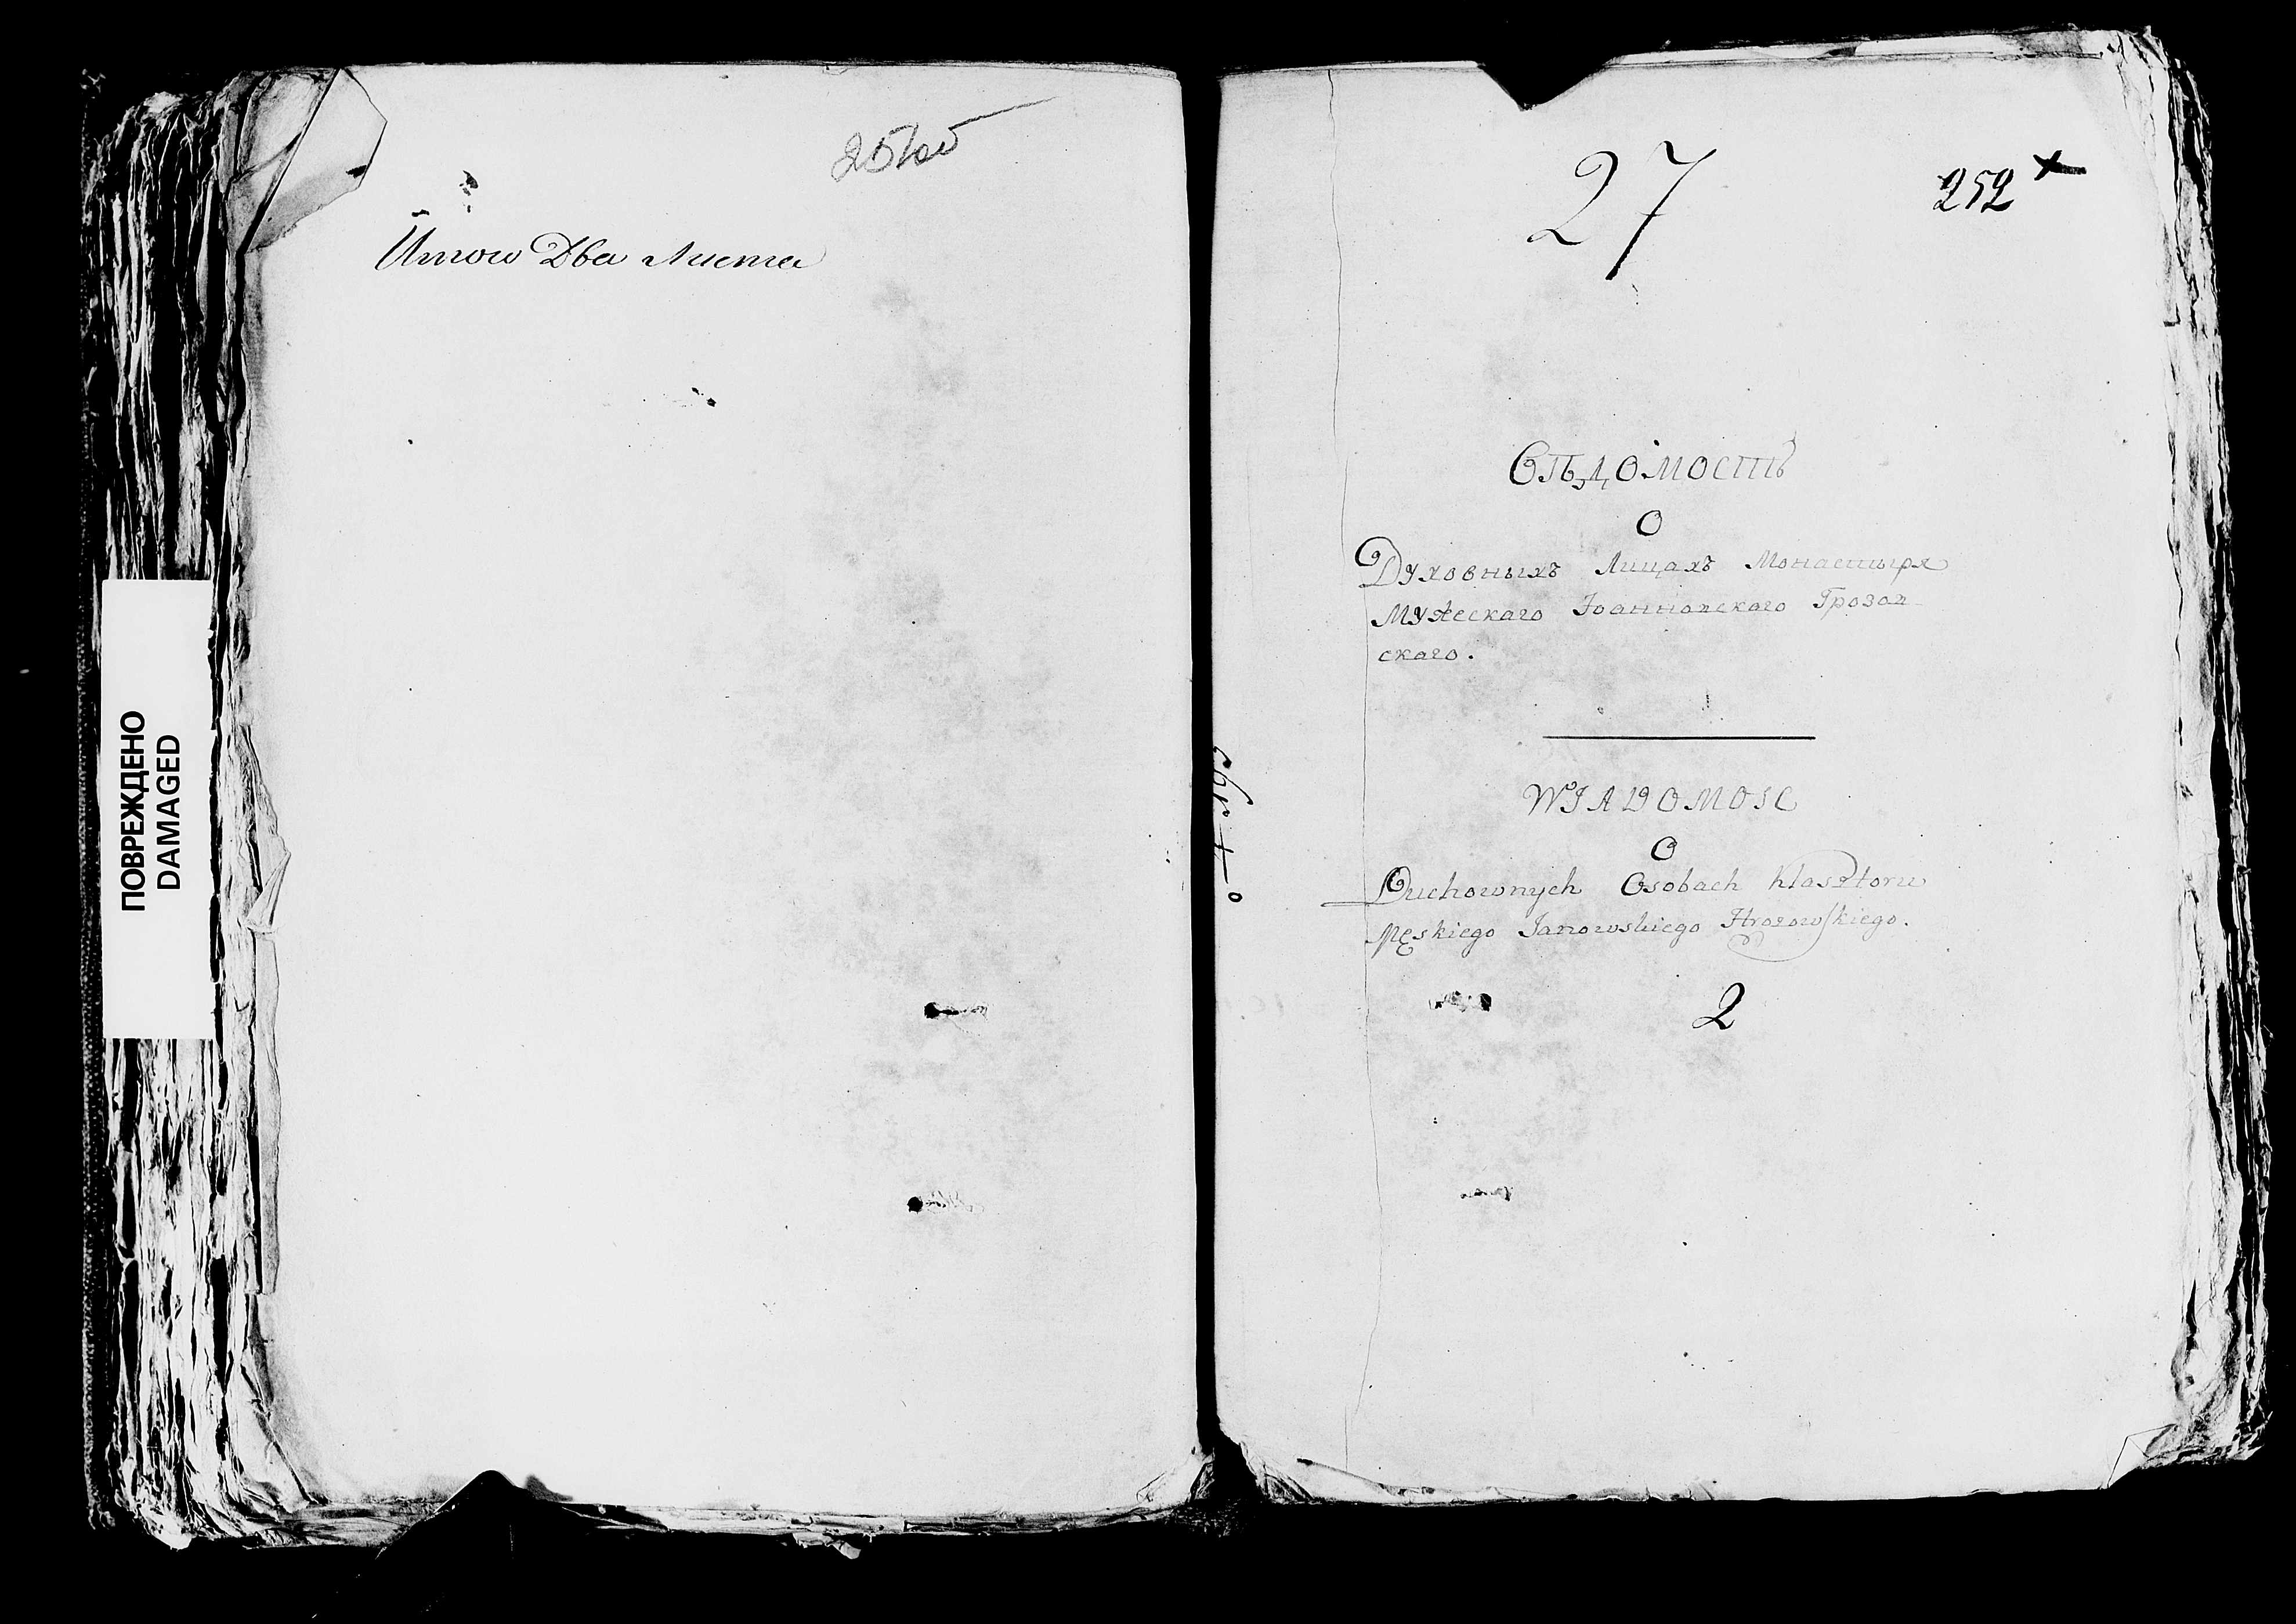 ПОВРЕЖДЕНО
DAMAGED
251об
Итого Два Листа
27
252
Вѣдомость
О
Духовныхъ Лицахъ Монастыря
Мужескаго Іоанновскаго Грозов-
скаго.
WJADOMOSC
O
Duchownych Osobach Klasztoru
Męskiego Janowskiego Hrozowskiego.
2